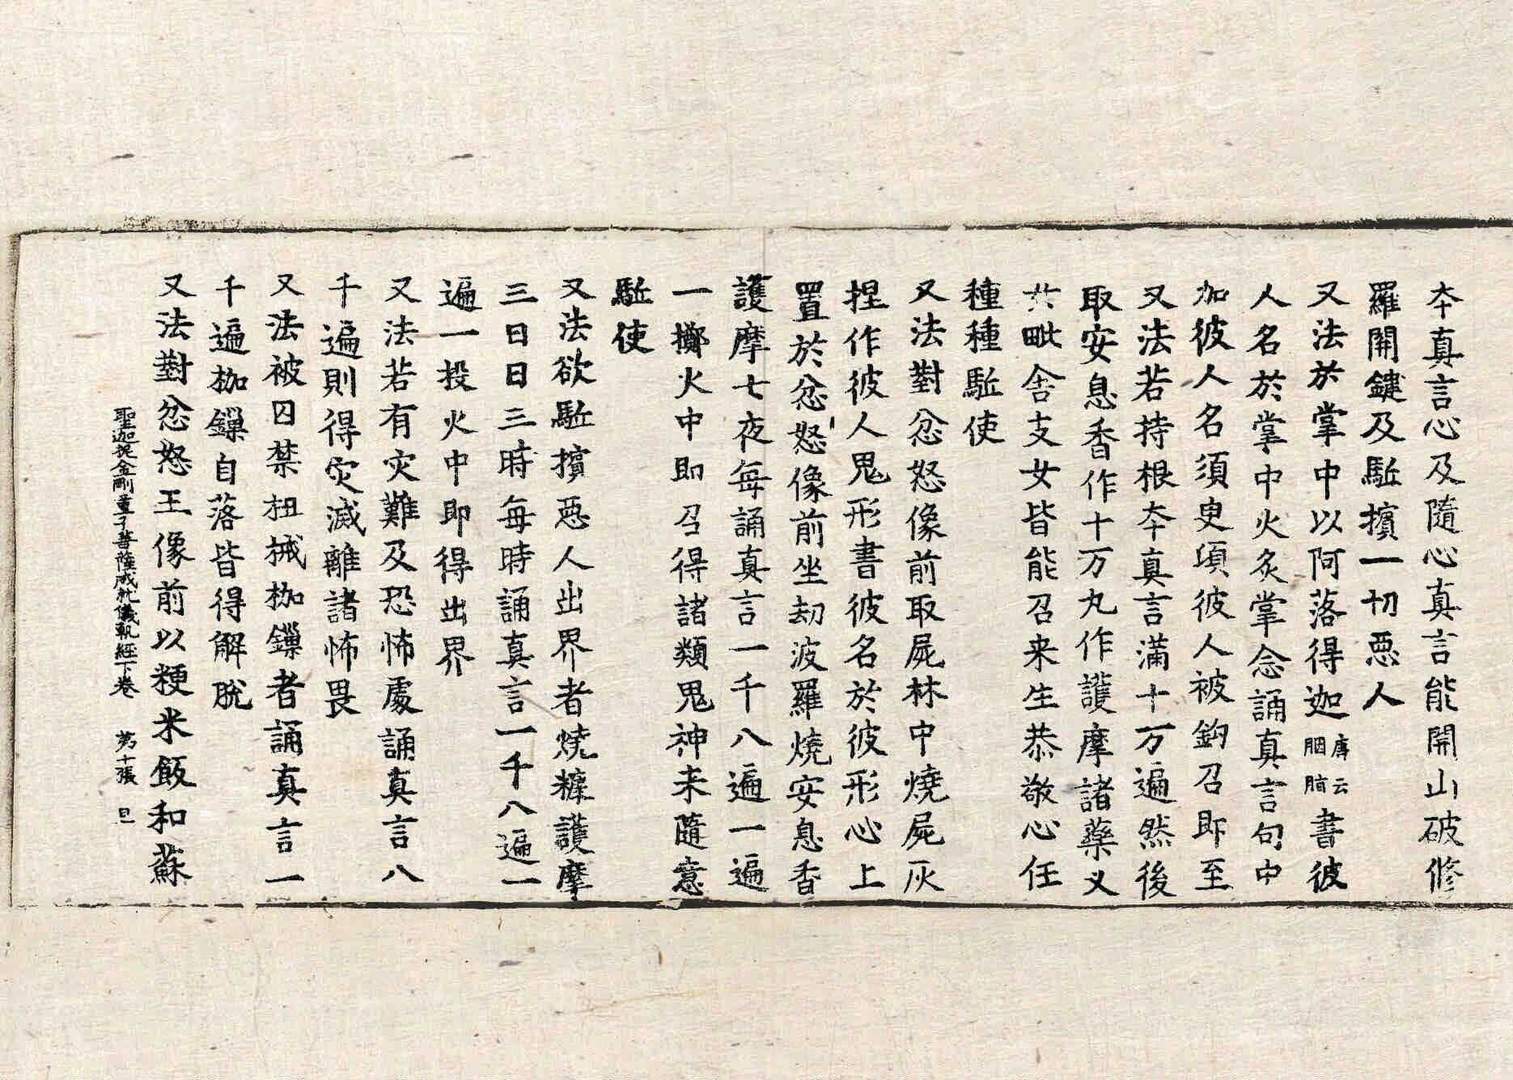 夲真言心及隨心真言能開山破修
羅開鍵及駈擯一切惡人
又法於掌中以阿落得迦唐云胭脂書彼
人名於掌中火炙掌念誦真言句中
加彼人名須臾頃彼人被鈎召即至
又法若持根夲真言滿十万遍然後
取安息香作十万丸作護摩諸藥义
共毗舍支女皆能召来生恭敬心任
種種駈使
又法對忿怒像前取屍林中燒屍灰
捏作彼人鬼形書彼名於彼形心上
置於忿怒像前坐劫波羅燒安息香
護摩七夜每誦真言一千八遍一遍
一擲火中即召得諸類鬼神来隨意
駈使
又法欲駈擯惡人出界者燒糠護摩
三日日三時每時誦真言一千八遍一
遍一投火中即得出界
又法若有灾難及恐怖處誦真言八
千遍則得灾滅離諸怖畏
又法被囚禁杻械枷鏁者誦真言一
千遍枷鏁自落皆得解脫
聖迦抳金剛童子菩薩成就儀軌經下卷 第十張 旦
又法對忿怒王像前以粳米飯和蘇